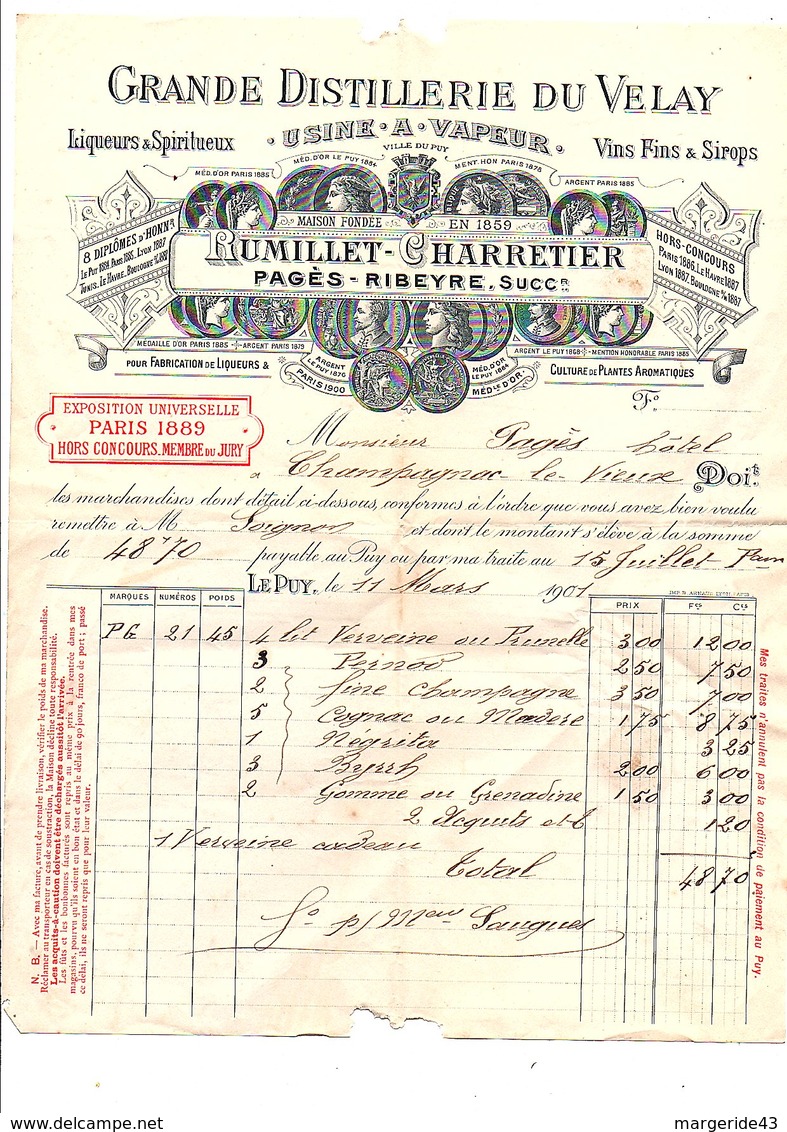 GRANDE DISTILLERIE DU VELAY
Liqueurs & Spiritueux
USINE · A · VAPEUR
Vins Fins & Sirops
VILLE DU PUY
MÉD. D'OR PARIS 1885
MÉD. D'OR LE PUY 1884
MENT. HON PARIS 1878
ARGENT PARIS 1885
MAISON FONDÉE EN 1859
8 DIPLÔMES D'HONNR
LE PUY 1884, PARIS 1885, LYON 1887
TUNIS, LE HAVRE, BOULOGNE S/M 1887
RUMILLET-CHARRETIER
PAGÈS-RIBEYRE, SUCCR
HORS-CONCOURS
PARIS 1886, LE HAVRE 1887
LYON 1887, BOULOGNE S/M 1887
MÉDAILLE D'OR PARIS 1885 ARGENT PARIS 1879
ARGENT LE PUY 1868 MENTION HONORABLE PARIS 1885
POUR FABRICATION DE LIQUEURS &
ARGENT LE PUY 1876
PARIS 1900
MÉD. D'OR LE PUY 1884
MÉDLE D'OR.
CULTURE DE PLANTES AROMATIQUES
Fo
EXPOSITION UNIVERSELLE
PARIS 1889
HORS CONCOURS. MEMBRE DU JURY
Monsieur Pagès hôtel
a Champagnac le Vieux Doit
les marchandises dont détail ci-dessous, conformes à l'ordre que vous avez bien voulu
remettre à M Soignon et dont le montant s'élève à la somme
de 48"70 payable au Puy ou par ma traite au 15 Juillet
LE PUY, le 11 Mars 1901
MARQUES NUMÉROS POIDS PRIX Fcs Ces
PG 21 45 4 lit Verveine ou Prunelle 3 00 12 00
3 Pernod 2 50 7 50
2 fine Champagne 3 50 7 00
5 Cognac ou Madere 1 75 8 75
1 Négrita 3 25
3 Byrrh 2 00 6 00
2 Gomme ou Grenadine 1 50 3 00
2 Acquits et 1 20
1 Verveine cadeau
Total 48 70
So p/ Meau Saugues
N. B. — Avec ma facture, avant de prendre livraison, vérifier le poids de ma marchandise.
Réclamer au transporteur en cas de soustraction, la Maison décline toute responsabilité.
Les acquits-à-caution doivent être déchargés aussitôt l'arrivée.
Les fûts et les bonbonnes facturés sont repris au même prix à la rentrée dans mes
magasins, pourvu qu'ils soient en bon état et dans le délai de 90 jours, franco de port ; passé
ce délai, ils ne seront repris que pour leur valeur.
Mes traites n'annulent pas la condition de paiement au Puy.
margeride43